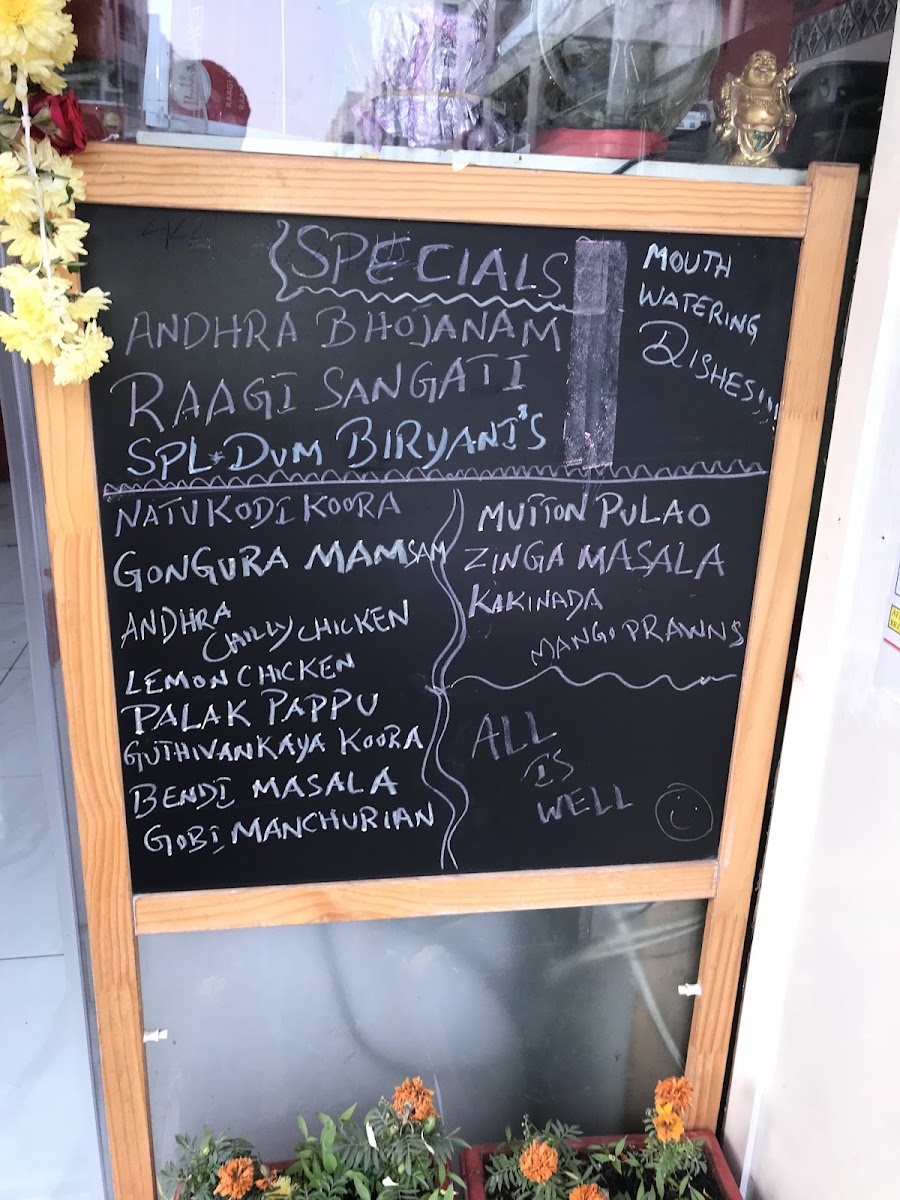 SPECIALS
ANDHRA BHOJANAM
RAAGI SANGATI
SPL. DUM BIRYANI'S
MOUTH
WATERING
DISHES!!!
NATUKODI KOORA
GONGURA MAMSAM
ANDHRA
CHILLY CHICKEN
LEMON CHICKEN
PALAK PAPPU
GUTHIVANKAYA KOORA
BENDI MASALA
GOBI MANCHURIAN
MUTTON PULAO
ZINGA MASALA
KAKINADA
MANGO PRAWNS
ALL
IS
WELL